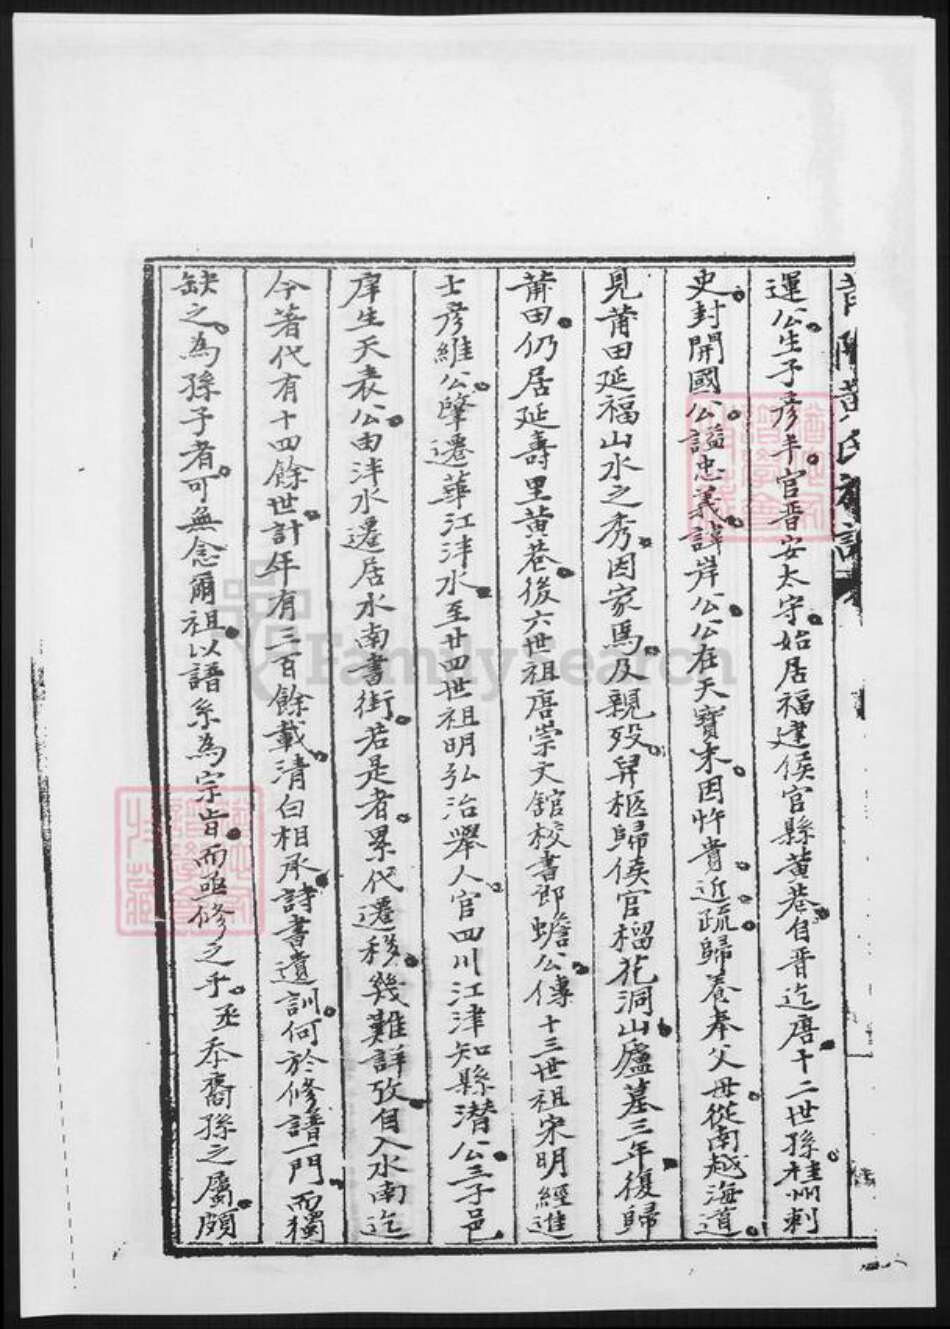 運公生子彦丰官晋安太守始居福建侯官縣黄巷自晋迄唐十二世孫桂州刺
史封開國公謚忠義諱岸公公在天寳末因忤貴近疏歸養奉父母從南越海道
見莆田延福山水之秀因家焉及親殁舁柩歸侯官榴花洞山廬墓三年復歸
莆田仍居延壽里黄巷後六世祖唐崇文舘校書郎蟾公傳十三世祖宋明經進
士彦維公肇遷華江泮水至廿四世祖明弘治舉人官四川江津知縣潜公三子邑
庠生天表公由泮水遷居水南書街若是者累代遷移幾難詳攷自入水南迄
今著代有十四餘世計年有三百餘載清白相承詩書遺訓何於修譜一門而獨
缺之為孫子者可無念爾祖以譜系為宗旨而亟修之乎丞忝裔孫之屬頗
FamilySearch